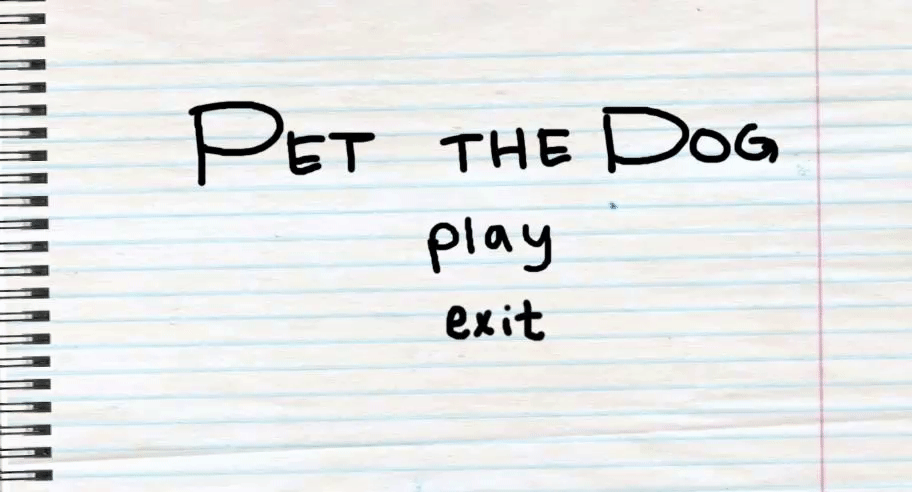 PET THE DOG
play
exit